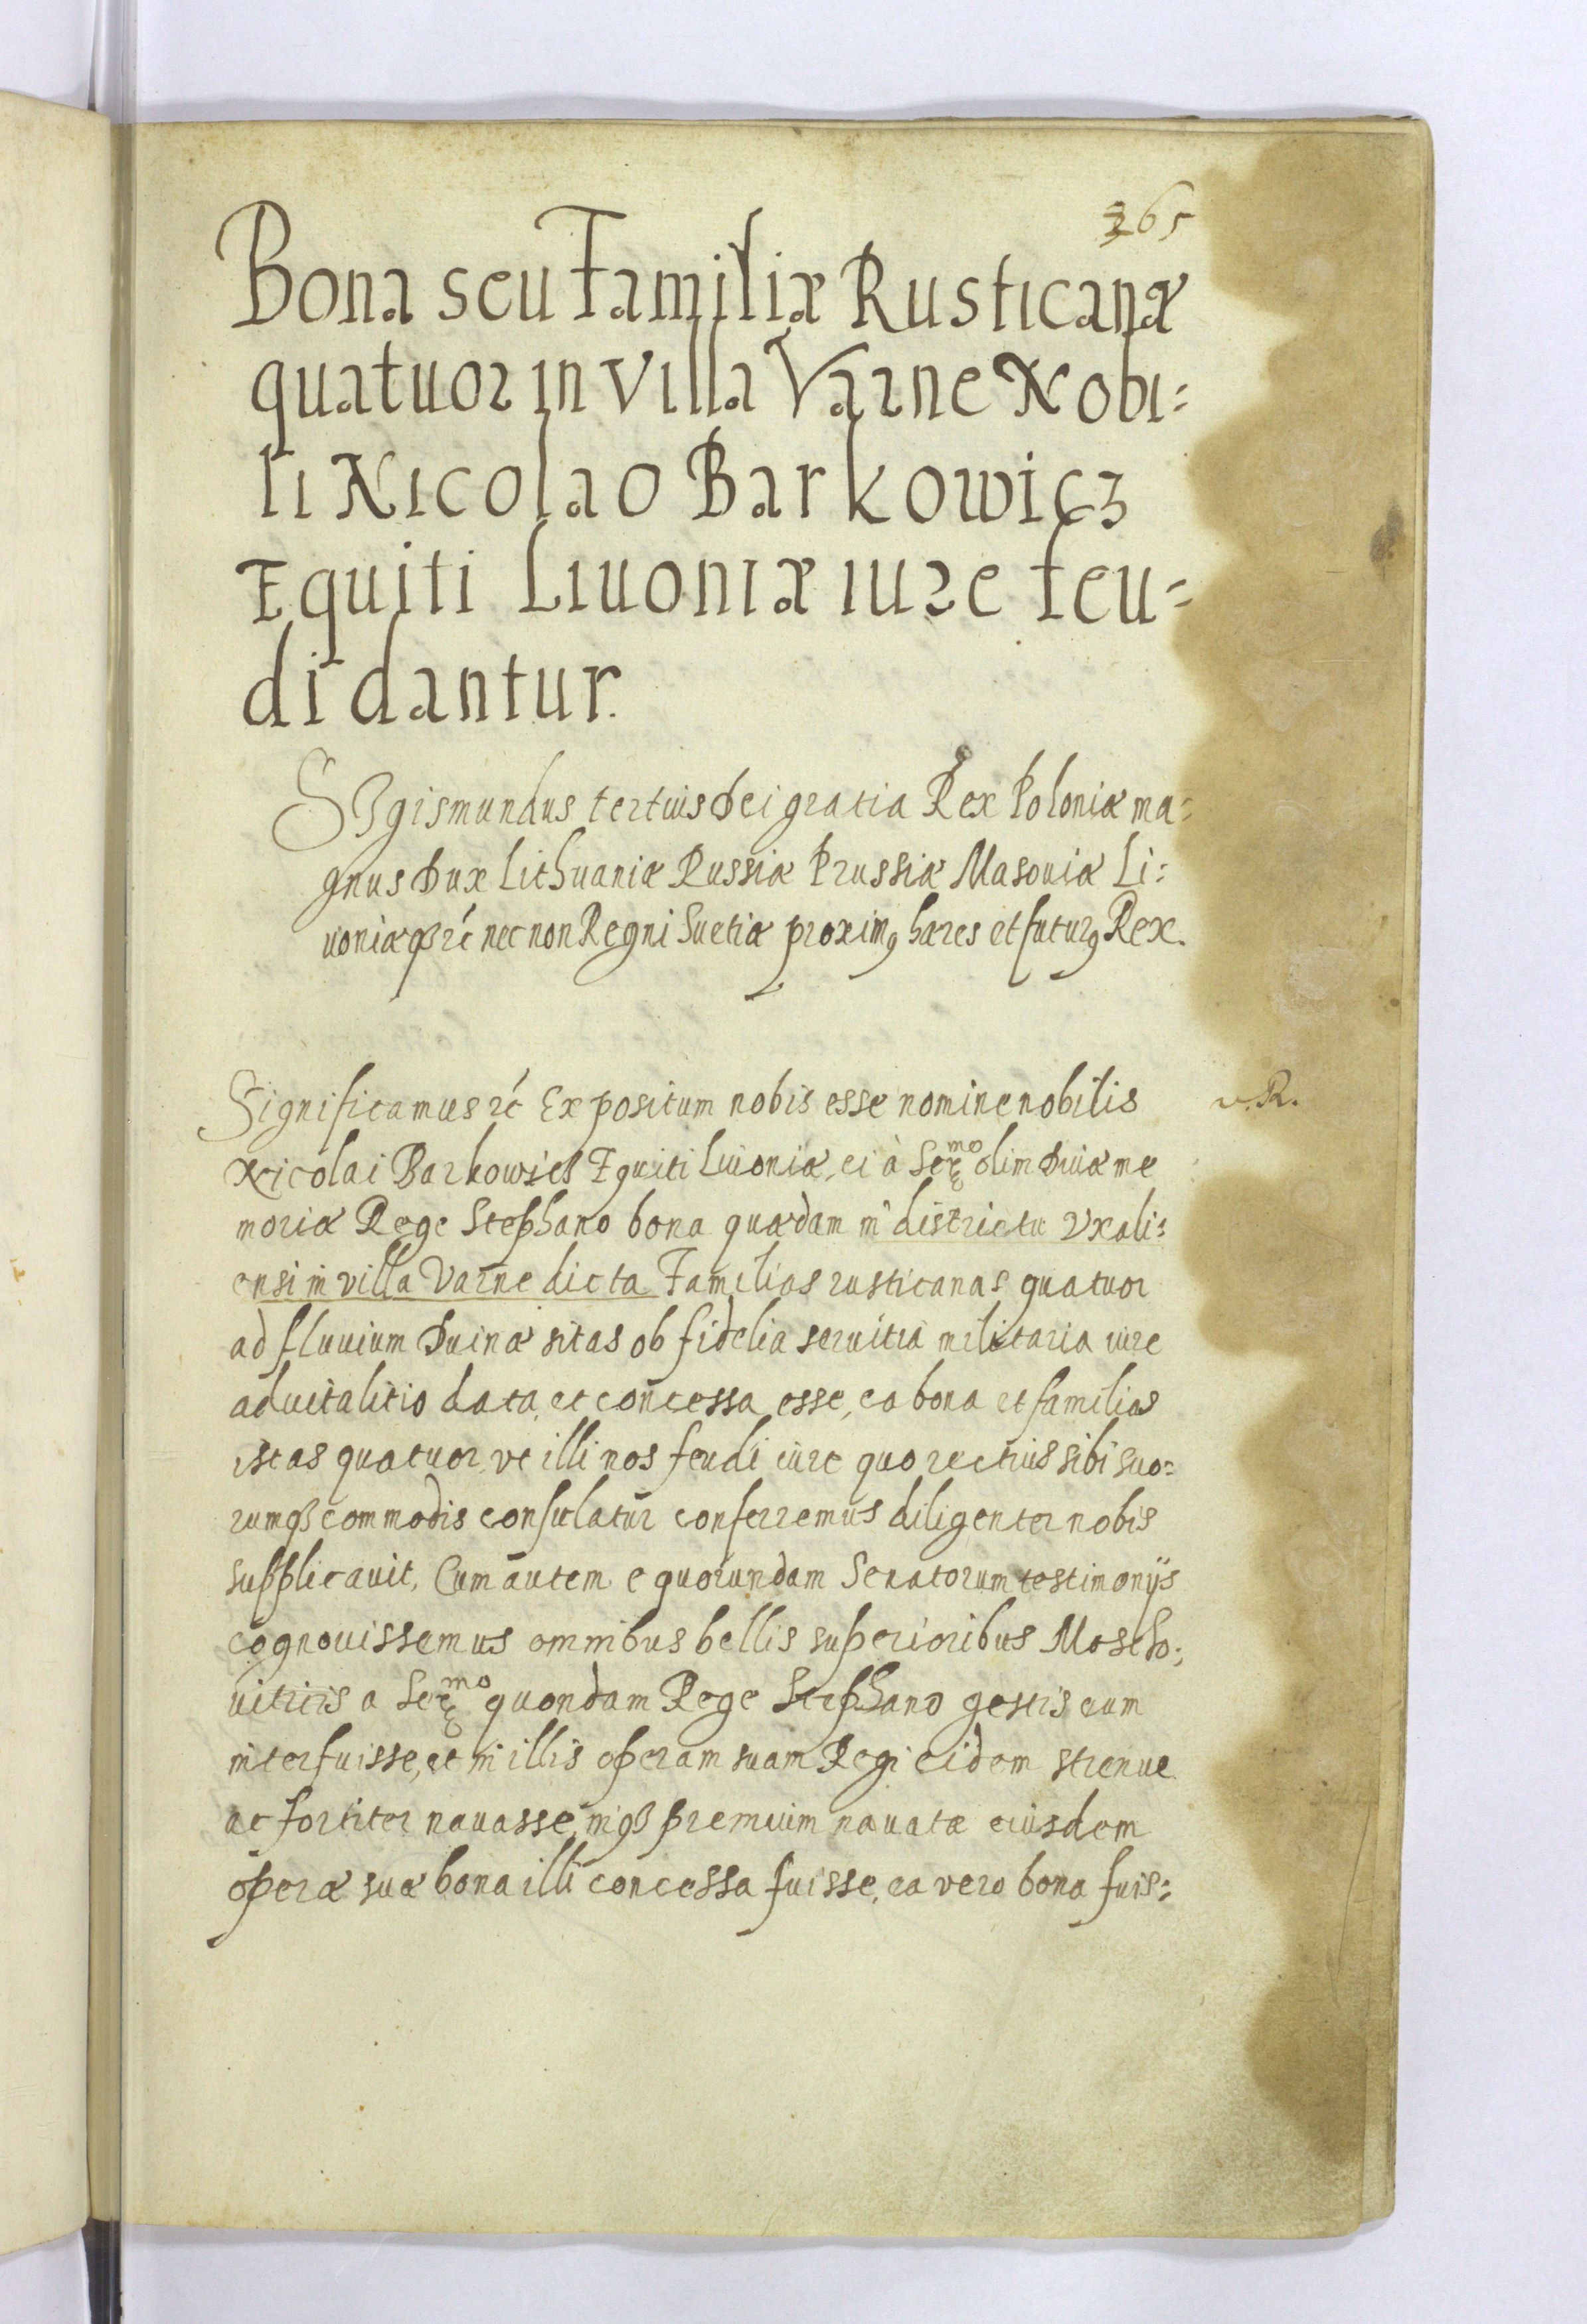 365
Bona seu Familiæ Rusticanæ
quatuor in villa Varne Nobi=
li Nicolao Barkowicz
Equiti Liuoniæ iure feu=
di dantur.
SIgismundus tertius Dei gratia Rex Poloniæ ma=
gnus Dux Lithuaniæ Russiæ Prussiæ Masouiæ Li=
uoniæqȝ ec̃ nec non Regni Suetiæ proximꝰ hæres et futurꝰ Rex.
Significamus ec̃ Expositum nobis esse nomine nobilis
v. R.
Nicolai Barkowics Equiti Liuoniæ, ei à Serᵐᵒ olim Diuæ me
moriæ Rege Stephano bona quædam in districtu Vxali=
ensi in villa Varne dicta Familias rusticanas quatuor
ad fluuium Duinæ sitas ob fidelia seruitia militaria iure
aduitalitio data, et concessa esse, ea bona et familias
istas quatuor, vt illi nos feudi iure quo rectius sibi suo=
rumqȝ commodis consulatur conferremus diligenter nobis
supplicauit, Cum autem e quorundam Senatorum testimonijs
cognouissemus omnibus bellis superioribus Moscho=
uiticis a Serᵐᵒ quondam Rege Stephano gestis eum
interfuisse, et in illis operam suam Regi eidem strenue
ac fortiter nauasse, inqȝ premium nauatæ eiusdem
operæ suæ bona illi concessa fuisse, ea vero bona fuis=